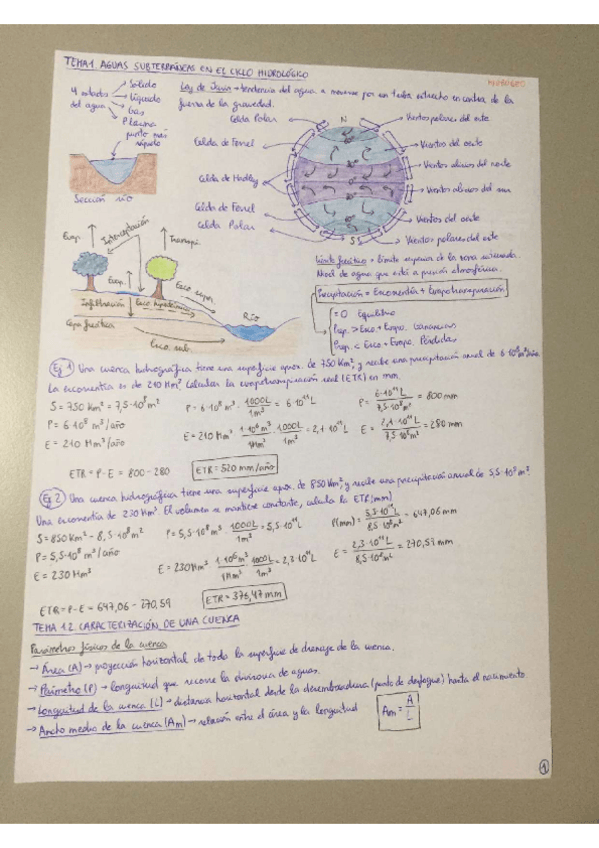 TEMA 1 AGUAS SUBTERRÁNEAS EN EL CICLO HIDROLÓGICO
4 estados del agua
Sólido
Líquido
Gas
Plasma
punto más rápido
Sección río
Ley de Jurin → tendencia del agua a moverse por un tubo estrecho en contra de la
fuerza de la gravedad.
Celda Polar
Celda de Ferrel
Celda de Hadley
Celda de Ferrel
Celda Polar
N
S
Vientos polares del este
Vientos del oeste
Vientos alisios del norte
Vientos alisios del sur
Vientos del oeste
Vientos polares del este
Evap.
Interceptación
Transpi.
Evap.
Infiltración
Esco. hipodérmica
Esco. super.
Río
Capa freática
Esco. sub.
Límite freático = límite superior de la zona saturada.
Nivel de > agua que está a presión atmosférica.
Precipitación = Escorrentía + Evapotranspiración
= 0 Equilibrio
Prep. > Esco. + Evapo. Ganancias
Prep. < Esco + Evapo. Pérdidas
Ej 1) Una cuenca hidrográfica tiene una superficie aprox. de 750 km², y recibe una precipitación anual de 6·10⁸ m³/año
La escorrentía es de 210 Hm³. Calcular la evapotranspiración real (ETR) en mm.
S = 750 Km² = 7,5·10⁸ m²
P = 6·10⁸ m³/año
E = 210 Hm³/año
P = 6·10⁸ m³ · 1000L/1m³ = 6·10¹¹ L
P = 6·10¹¹ L/7,5·10⁸ m² = 800 mm
E = 210 Hm³ · 1·10⁶ m³/1Hm³ · 1000L/1m³ = 2,1·10¹¹ L
E = 2,1·10¹¹ L/7,5·10⁸ m² = 280 mm
ETR = P - E = 800 - 280
ETR = 520 mm/año
Ej 2) Una cuenca hidrográfica tiene una superficie aprox. de 850 Km², y recibe una precipitación anual de 5,5·10⁸ m³.
Una escorrentía de 230 Hm³. El volumen se mantiene constante, calcula la ETR (mm)
S = 850 Km² - 8,5·10⁸ m²
P = 5,5·10⁸ m³/año
E = 230 Hm³
P = 5,5·10⁸ m³ · 1000L/1m³ = 5,5·10¹¹ L
P(mm) = 5,5·10¹¹ L/8,5·10⁸ m² = 647,06 mm
E = 230 Hm³ · 1·10⁶ m³/1Hm³ · 1000L/1m³ = 2,3·10¹¹ L
E = 2,3·10¹¹ L/8,5·10⁸ m² = 270,59 mm
ETR = P - E = 647,06 - 270,59
ETR = 376,47 mm
TEMA 1.2. CARACTERIZACIÓN DE UNA CUENCA
Parámetros físicos de la cuenca
→ Área (A) → proyección horizontal de toda la superficie de drenaje de la cuenca.
→ Perímetro (P) → longitud que recorre la divisoria de aguas.
→ Longitud de la cuenca (L) → distancia horizontal desde la desembocadura (punto de desfogue) hasta el nacimiento.
→ Ancho medio de la cuenca (Am) → relación entre el área y la longitud
Am = A/L
1